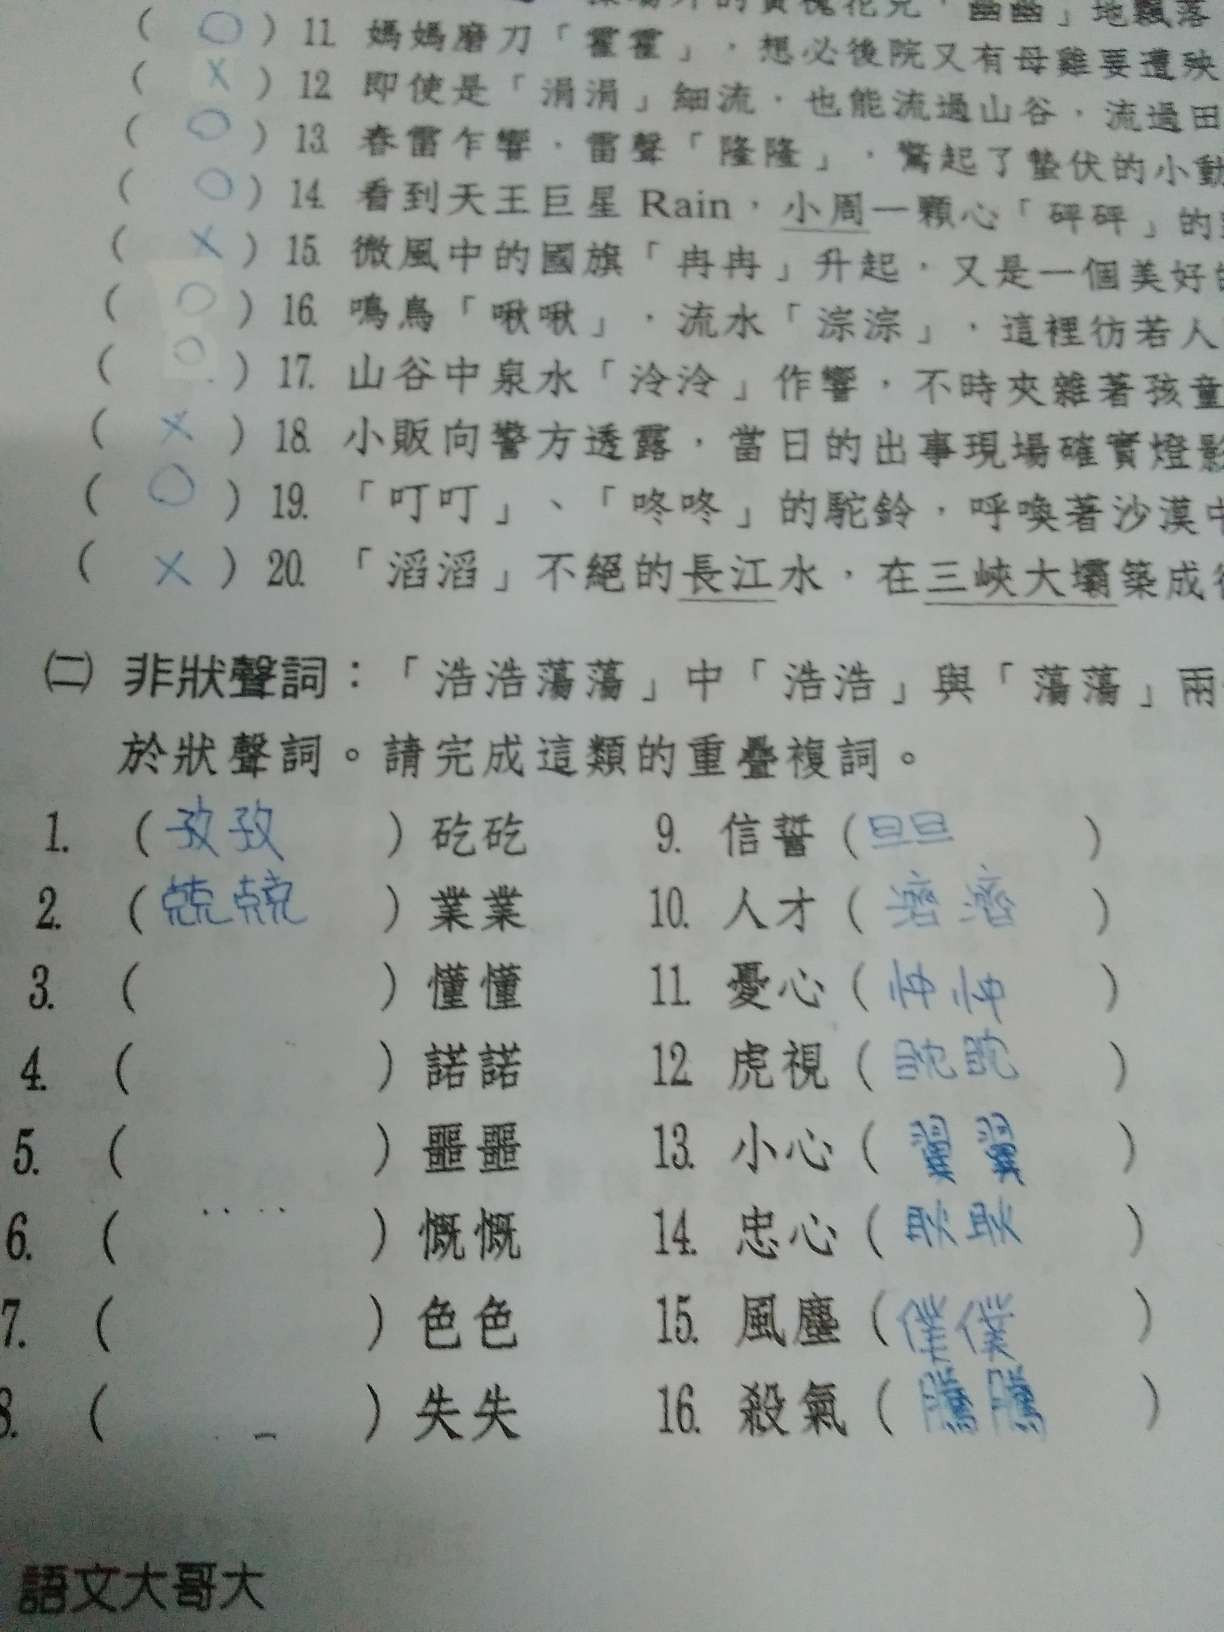 地飄落
( ○ ) 11. 媽媽磨刀「霍霍」，想必後院又有母雞要遭殃
( × ) 12. 即使是「涓涓」細流，也能流過山谷，流過田
( ○ ) 13. 春雷乍響，雷聲「隆隆」，驚起了蟄伏的小動
( ○ ) 14. 看到天王巨星 Rain，小周一顆心「砰砰」的
( × ) 15. 微風中的國旗「冉冉」升起，又是一個美好
( ○ ) 16. 鳴鳥「啾啾」，流水「淙淙」，這裡彷若人
( ○ ) 17. 山谷中泉水「泠泠」作響，不時夾雜著孩童
( × ) 18. 小販向警方透露，當日的出事現場確實燈影
( ○ ) 19. 「叮叮」、「咚咚」的駝鈴，呼喚著沙漠中
( × ) 20. 「滔滔」不絕的長江水，在三峽大壩築成後
㈡ 非狀聲詞：「浩浩蕩蕩」中「浩浩」與「蕩蕩」兩
於狀聲詞。請完成這類的重疊複詞。
1. ( 孜孜 ) 矻矻 9. 信誓 ( 旦旦 )
2. ( 兢兢 ) 業業 10. 人才 ( 濟濟 )
3. ( ) 懂懂 11. 憂心 ( 忡忡 )
4. ( ) 諾諾 12. 虎視 ( 眈眈 )
5. ( ) 噩噩 13. 小心 ( 翼翼 )
6. ( ) 慨慨 14. 忠心 ( 耿耿 )
7. ( ) 色色 15. 風塵 ( 僕僕 )
8. ( ) 失失 16. 殺氣 ( 騰騰 )
語文大哥大